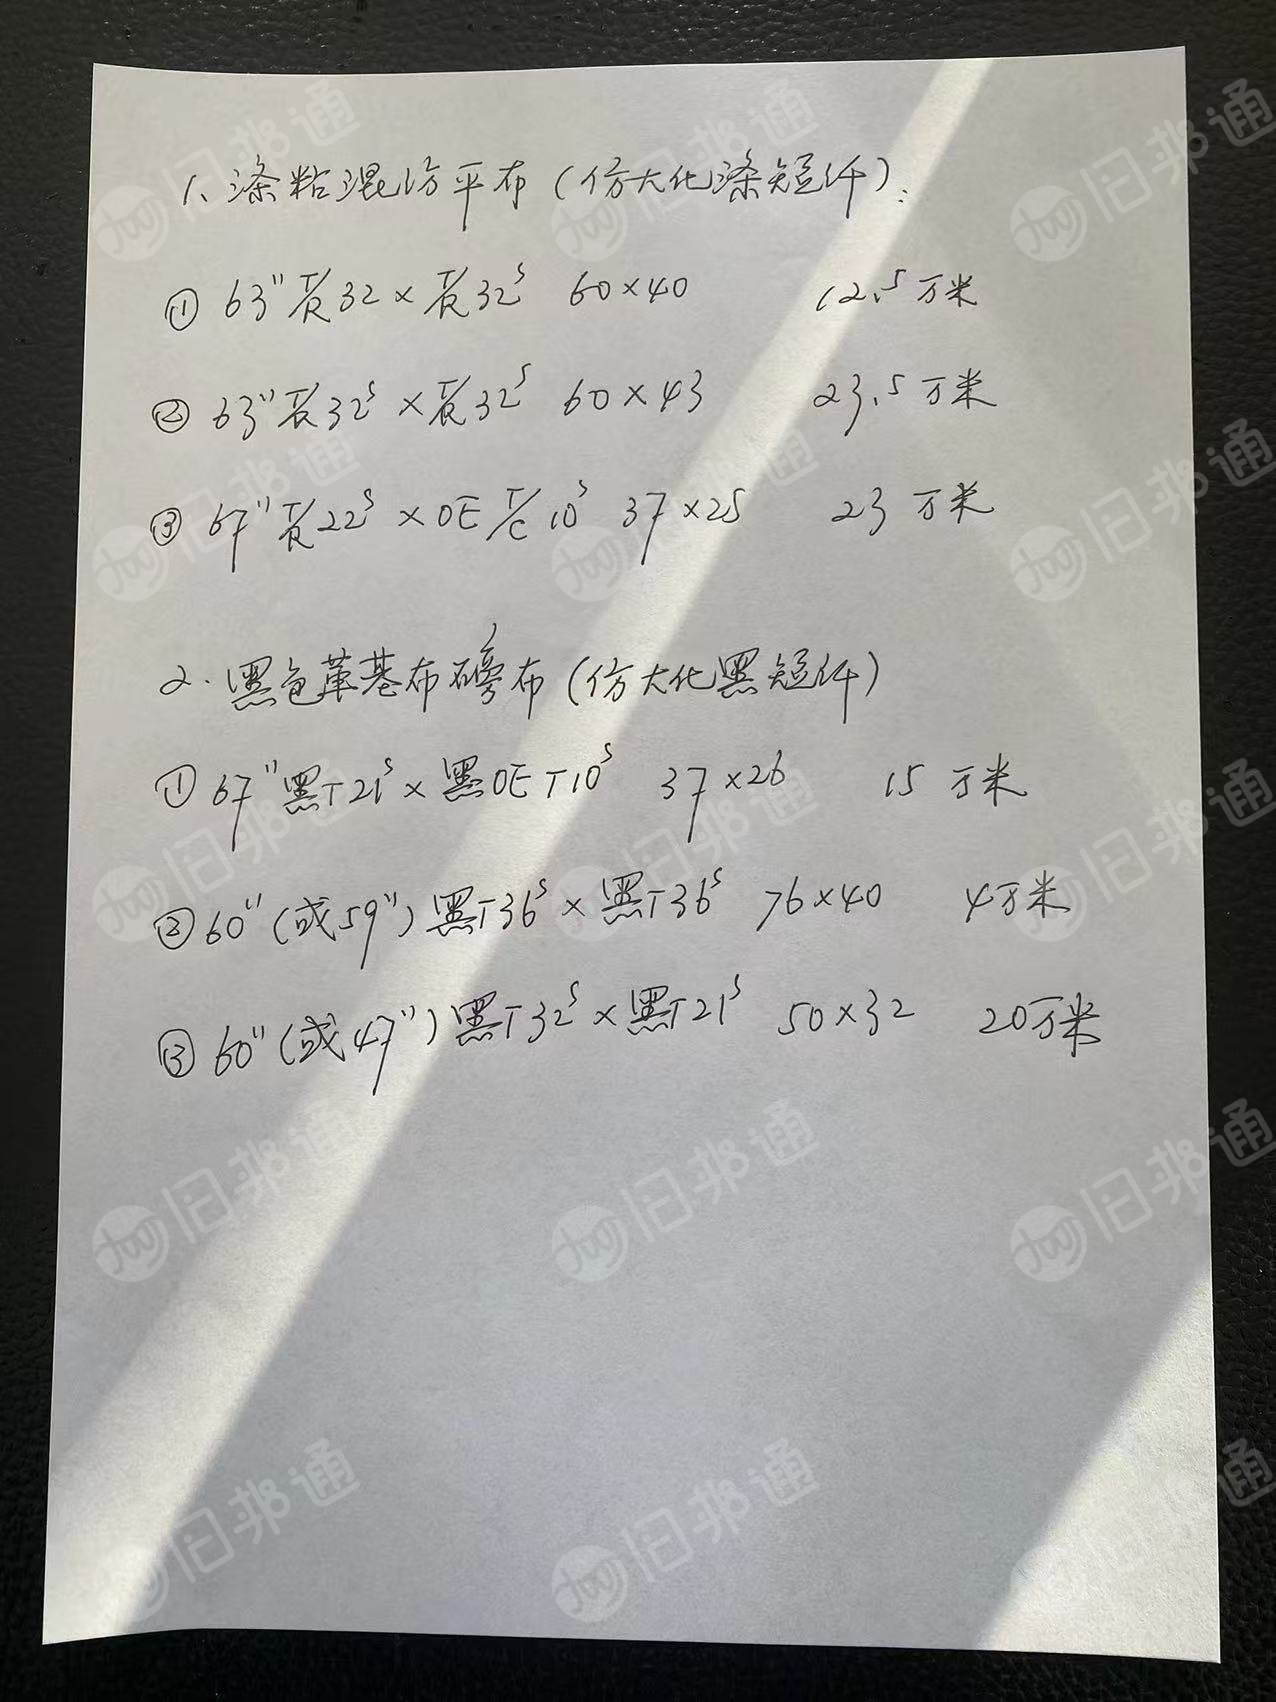 1、涤粘混纺平布（仿大化涤短纤）：
① 63" T/R 32 × T/R 32ˢ 60×40 12.5万米
② 63" T/R 32ˢ × T/R 32ˢ 60×43 23.5万米
③ 67" T/R 22ˢ × OE T/C 10ˢ 37×25 23万米
2.黑色革基布磅布(仿大化黑短纤)
① 67"黑T21ˢ×黑OE T10ˢ 37×26 15万米
② 60"(或59")黑T36ˢ×黑T36ˢ 76×40 4万米
③ 60"(或47")黑T32ˢ×黑T21ˢ 50×32 20万米
旧邦通